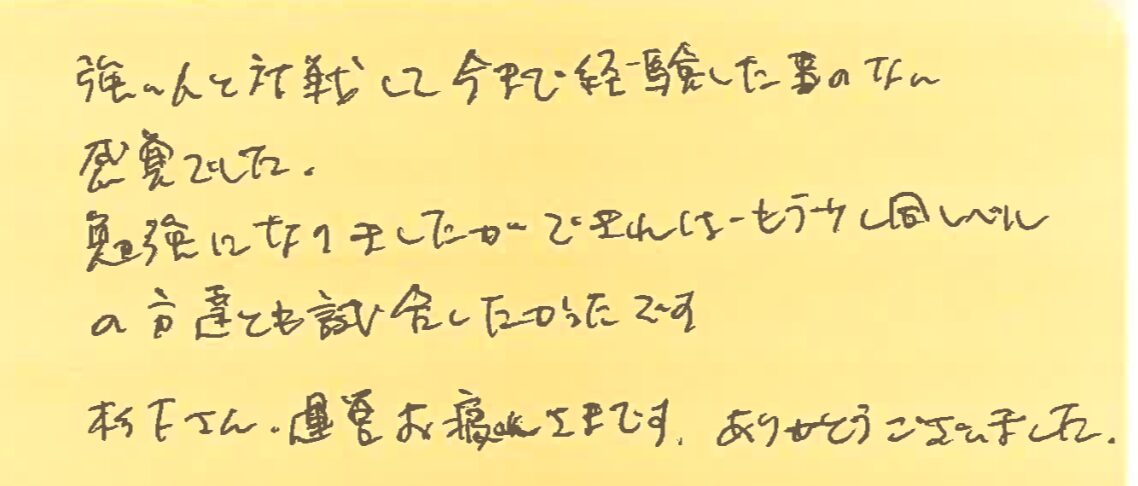 強い人と対戦して今まで経験した事のない
感覚でした。
勉強になりましたができればもう少し同レベル
の方達とも試合したかったです
杉下さん、運営お疲れさまです。ありがとうございました。